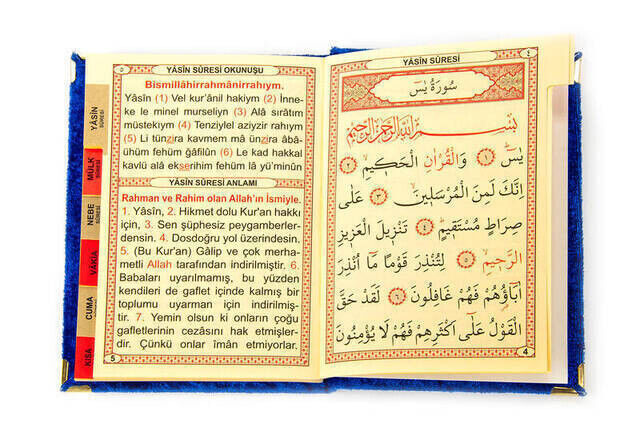 YÂSİN SÛRESİ OKUNUŞU
Bismillâhirrahmânirrahıym.
Yâsîn (1) Vel kur'ânil hakiym (2) İnne-
ke le minel murseliyn (3) Alâ sırâtım
müstekıym (4) Tenziylel aziyzir rahıym
(5) Li tünzira kavmem mâ ünzira âbâ-
ühüm fehüm ğâfilûn (6) Le kad hakkal
kavlü alâ ekserihim fehüm lâ yü'minûn
YÂSİN SÛRESİ ANLAMI
Rahman ve Rahim olan Allah'ın İsmiyle.
1. Yâsîn, 2. Hikmet dolu Kur'an hakkı
için, 3. Sen şüphesiz peygamberler-
densin. 4. Dosdoğru yol üzerindesin.
5. (Bu Kur'an) Gâlip ve çok merha-
metli Allah tarafından indirilmiştir. 6.
Babaları uyarılmamış, bu yüzden
kendileri de gaflet içinde kalmış bir
toplumu uyarman için indirilmiş-
tir. 7. Yemin olsun ki onların çoğu
gafletlerinin cezasını hak etmişler-
dir. Çünkü onlar îmân etmiyorlar.
5
YÂSİN
SÛRESİ
MÜLK
NEBE
SÛRESİ
VAKIA
CUMA
KISA
YÂSİN SÛRESİ
٤
سُورَةُ يٰسٓ
بِسْمِ اللّٰهِ الرَّحْمٰنِ الرَّحِيمِ
يٰسٓ ﴿١﴾ وَالْقُرْاٰنِ الْحَك۪يمِ ﴿٢﴾
اِنَّكَ لَمِنَ الْمُرْسَل۪ينَ ﴿٣﴾ عَلٰى
صِرَاطٍ مُسْتَق۪يمٍ ﴿٤﴾ تَنْز۪يلَ الْعَز۪يزِ
الرَّح۪يمِ ﴿٥﴾ لِتُنْذِرَ قَوْمًا مَٓا اُنْذِرَ
اٰبَٓاؤُ۬هُمْ فَهُمْ غَافِلُونَ ﴿٦﴾ لَقَدْ حَقَّ
الْقَوْلُ عَلٰٓى اَكْثَرِهِمْ فَهُمْ لَا يُؤْمِنُونَ
4